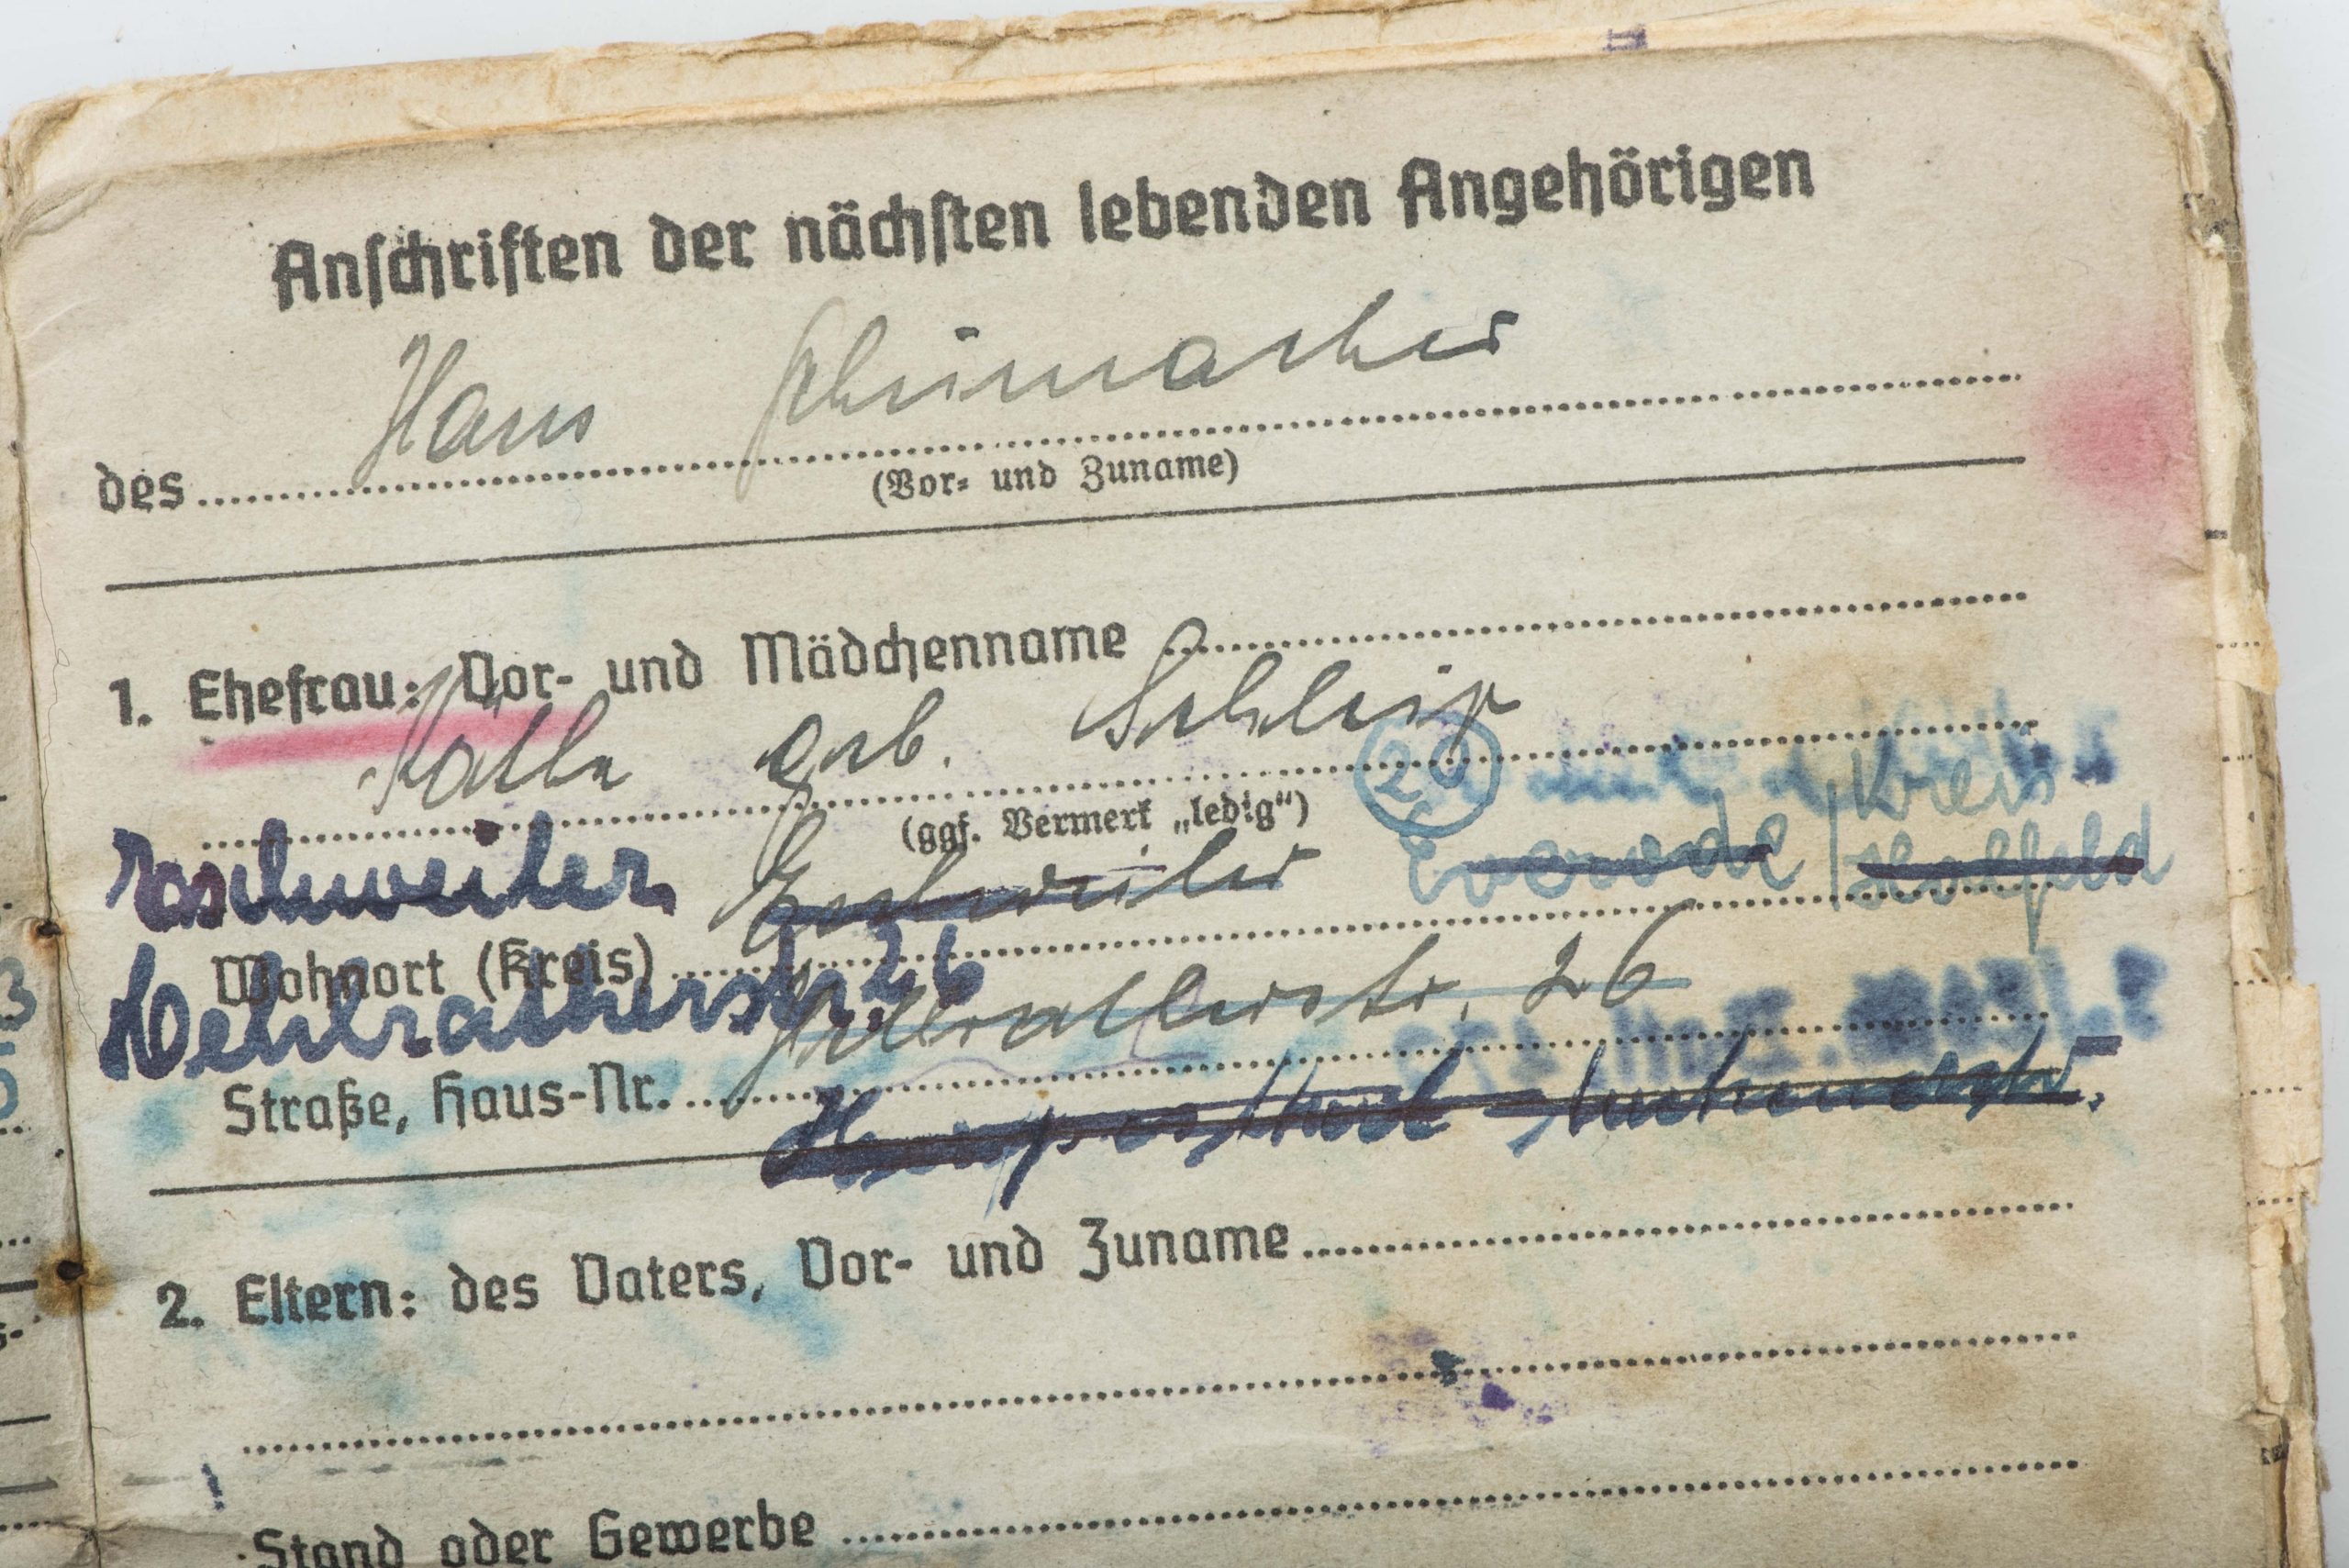 Anschriften der nächsten lebenden Angehörigen
des Hans Schumacher
(Vor- und Zuname)
1. Ehefrau: Vor- und Mädchenname
Käthe geb. Schleip
(ggf. Vermerk „ledig“)
20
Kreis
Eschweiler Eschweiler Everode
Wohnort (Kreis)
Wehlratherstr. 26 str. 26
Straße, Haus-Nr.
2. Eltern: des Vaters, Vor- und Zuname
Stand oder Gewerbe